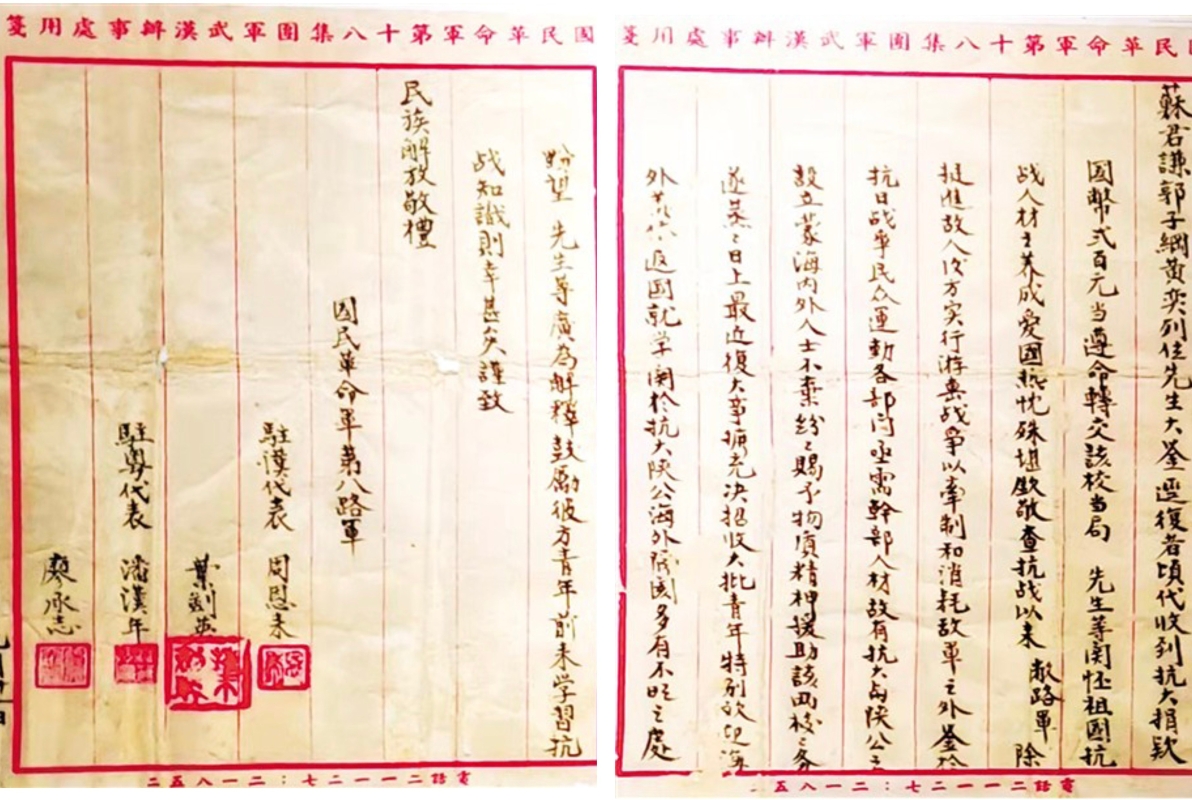 國民革命軍第十八集團軍武漢辦事處用箋
蘇君謙郭子綱黃奕列位先生大鑒逕復者頃代收到抗大捐款
国幣弍百元当遵命轉交該校当局 先生等関怀祖國抗
战人材之养成爱國热忱殊堪欽敬查抗战以来 敝路軍 除
挺進敌人後方实行游击战争以牽制和消耗敌軍之外鉴於
抗日战争民众運動各部门亟需幹部人材故有抗大与陕公之
設立蒙海内外人士不棄纷々賜予物質精神援助該两校之务
遂蒸々日上最近復大事擴充决招收大批青年特别欢迎海
外 返國就学関於抗大陕公海外 多有不明之處
電話二一一二七：二一八五
國民革命軍第十八集團軍武漢辦事處用箋
盼望 先生等廣為解釋鼓勵彼方青年前来学習抗
战知識則幸甚矣謹致
民族解放敬禮
國民革命軍第八路軍
駐漢代表 周恩来
葉劍英
駐粵代表 潘漢年
廖承志
電話二一一二七：二一八五二